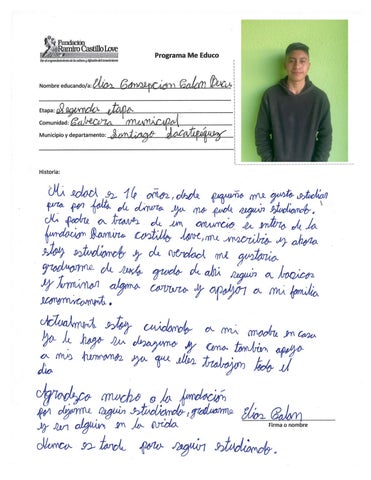 Fundación
Ramiro Castillo Love
Programa Me Educo
Nombre educando/a: Elias Consepcion Calon
Etapa: Segunda etapa
Comunidad: Cabecera municipal
Municipio y departamento: Santiago Sacatepéquez
Historia:
Mi edad es 16 años, desde pequeño me gusto estudiar
pero por falta de dinero ya no pude seguir estudiando.
Mi padre a traves de un anuncio se entero de la
fundacion Ramiro castillo love, me inscribio y ahora
estoy estudiando y de verdad me gustaria
graduarme de sexto grado de ahi seguir a basicos
y terminar alguna carrera y apoyar a mi familia
economicamente.
Actualmente estoy cuidando a mi madre en casa
ya le hago su desayuno y cena tambien apoyo
a mis hermanos ya que ellos trabajan todo el
dia
Agradezco mucho a la fundación
por dejarme seguir estudiando, graduarme
y ser alguien en la vida
Elias Calon
Firma o nombre
Nunca es tarde para seguir estudiando.